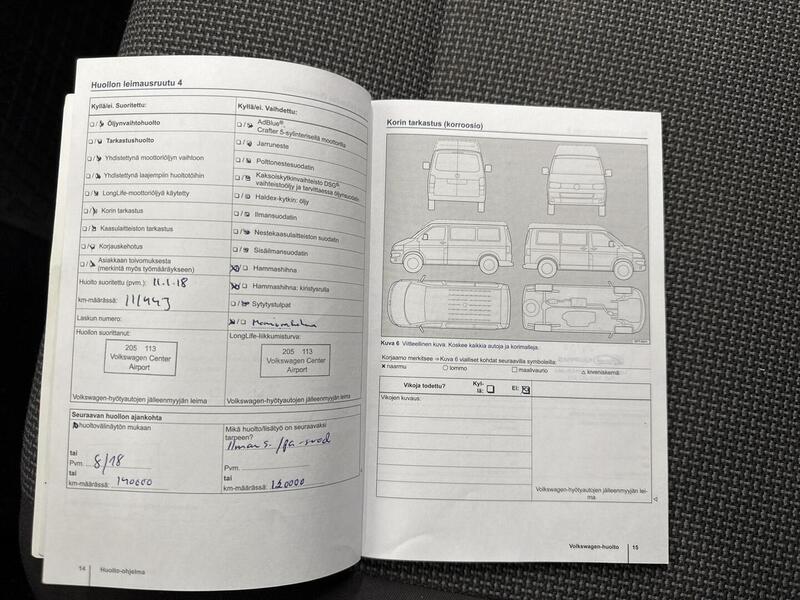 Huollon leimausruutu 4
Kyllä/ei. Suoritettu:
❏ / Öljynvaihtohuolto
❏ / Tarkastushuolto
❏ / Yhdistettynä moottoriöljyn vaihtoon
❏ / Yhdistettynä laajempiin huoltotöihin
❏ / LongLife-moottoriöljyä käytetty
❏ / Korin tarkastus
❏ / Kaasulaitteiston tarkastus
❏ / Korjauskehotus
❏ / Asiakkaan toivomuksesta
(merkintä myös työmääräykseen)
Huolto suoritettu (pvm.): 11.1.18
km-määrässä: 111443
Laskun numero:
Huollon suorittanut:
205 113
Volkswagen Center
Airport
Volkswagen-hyötyautojen jälleenmyyjän leima
Kyllä/ei. Vaihdettu:
❏ / AdBlue®:
Crafter 5-sylinterisellä moottorilla
❏ / Jarruneste
❏ / Polttonestesuodatin
❏ / Kaksoiskytkinvaihteisto DSG®:
vaihteistoöljy ja tarvittaessa öljynsuodatin
❏ / Haldex-kytkin: öljy
❏ / Ilmansuodatin
❏ / Nestekaasulaitteiston suodatin
❏ / Sisäilmansuodatin
Hammashihna
Hammashihna: kiristysrulla
❏ / Sytytystulpat
LongLife-liikkumisturva:
205 113
Volkswagen Center
Airport
Volkswagen-hyötyautojen jälleenmyyjän leima
Seuraavan huollon ajankohta
huoltovälinäytön mukaan
tai
Pvm. 8/18
tai
km-määrässä: 140000
Mikä huolto/lisätyö on seuraavaksi
tarpeen?
Ilman s. /pa-suod
Pvm.
tai
km-määrässä: 120000
14 Huolto-ohjelma
Korin tarkastus (korroosio)
Kuva 6 Viitteellinen kuva: Koskee kaikkia autoja ja korimalleja.
Korjaamo merkitsee ⇒ Kuva 6 vialliset kohdat seuraavilla symboleilla:
✖ naarmu ○ lommo □ maalivaurio △ kiveniskemä
Vikoja todettu? Kyl-
lä: ❏ Ei:
Vikojen kuvaus:
Volkswagen-hyötyautojen jälleenmyyjän lei-
ma
Volkswagen-huolto 15